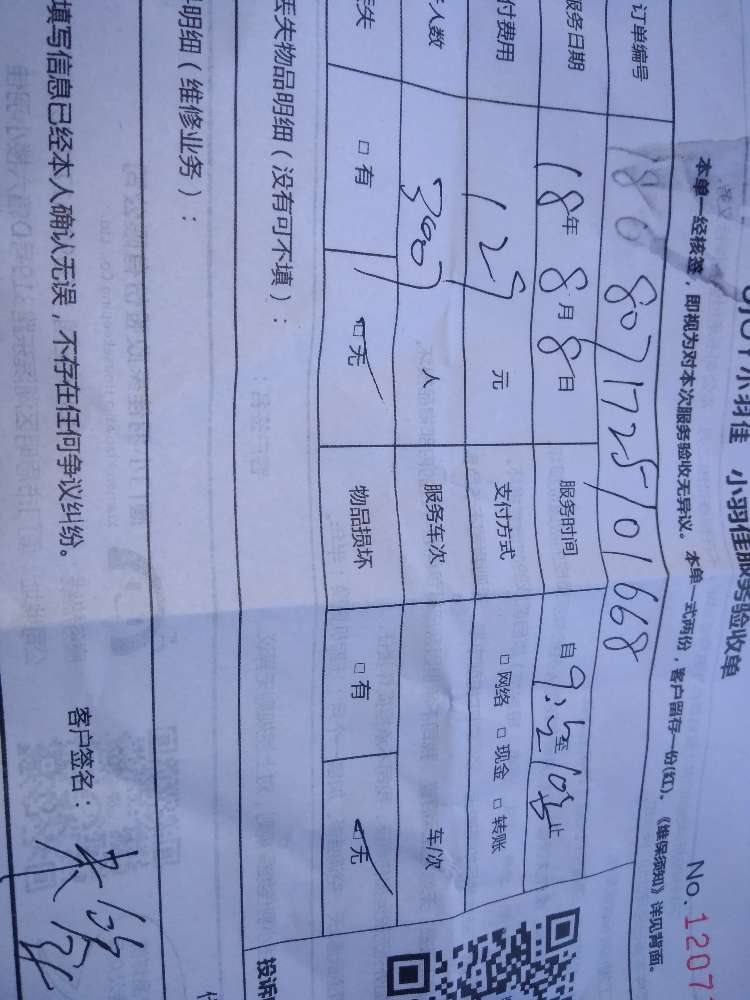 小羽佳 小羽佳服务验收单
No.1207
本单一经核签，即视为对本次服务验收无异议。本单一式两份，客户留存一份(红)。《维保须知》详见背面。
订单编号 180807172510 1668
服务日期 18年 8月 8日 服务时间 自 至 止
付费用 129 元 支付方式 □ 网络 □ 现金 □ 转账
人数 人 服务车次 车/次
丢失 □ 有 □ 无 物品损坏 □ 有 □ 无
丢失物品明细（没有可不填）：
明细（维修业务）：
投诉
填写信息已经本人确认无误，不存在任何争议纠纷。 客户签名：